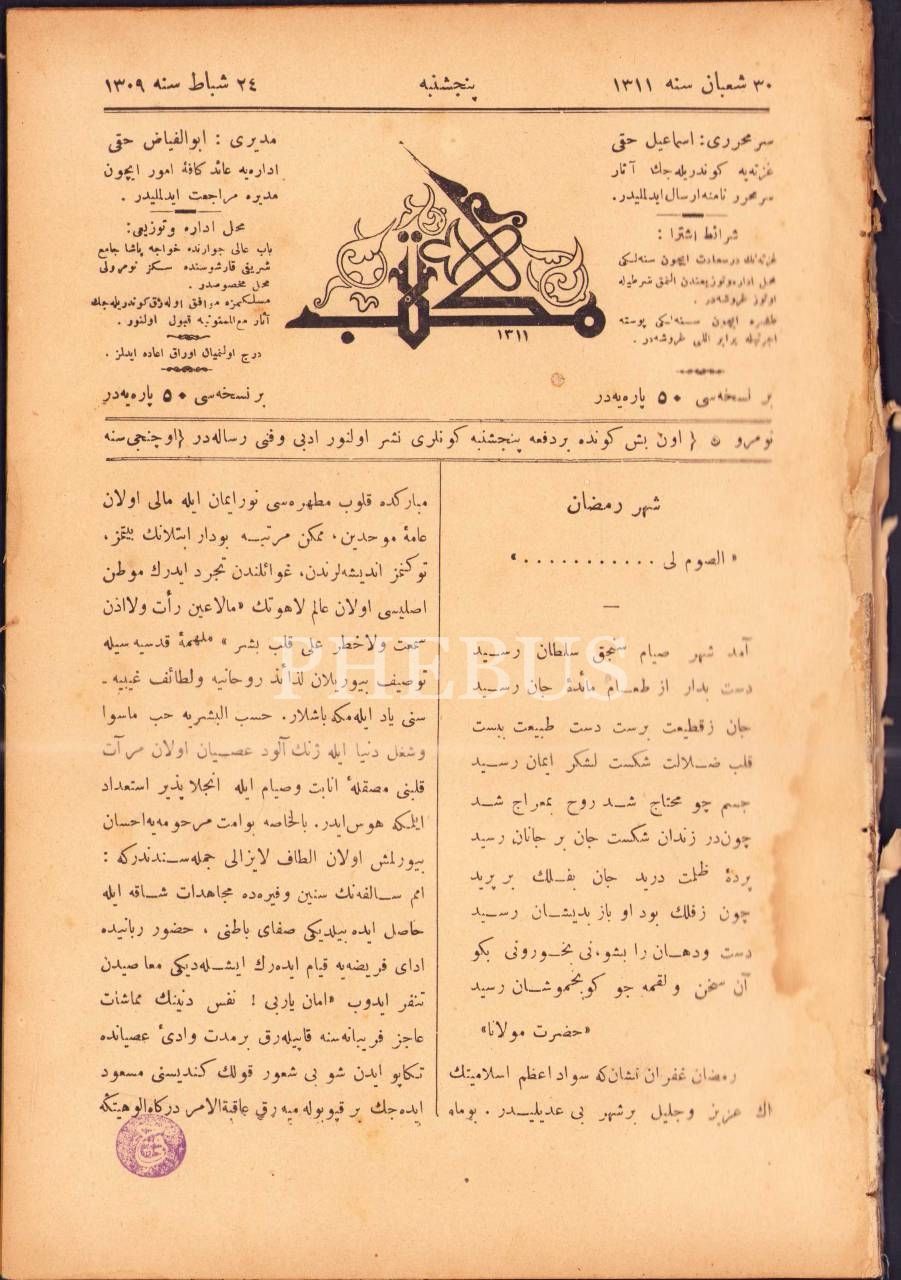 ٣٠ شعبان سنه ١٣١١
پنجشنبه
٢٤ شباط سنه ١٣٠٩
سر محرری : اسماعیل حقی
غزته‌یه كوندریله‌جك آثار
سر محرر نامنه ارسال ایدلملیدر.
شرائط اشترا :
محل اداره و توزیعندن آلنمق شرطیله
اوتوز غروشه‌در .
طشره ایچون سنه‌لكی پوسته
اجرتیله برابر اللی غروشه‌در .
بر نسخه‌سی ٥٠ پاره‌یه‌در
مكتب
١٣١١
مدیری : ابوالفیاض حقی
اداره‌یه عائد كافهٔ امور ایچون
مدیره مراجعت ایدلملیدر .
محل اداره وتوزیعی:
باب عالی جوارنده خواجه پاشا جامع
شریفی قارشوسنده سكز نومرولی
محل مخصوصدر .
مسلكمزه موافق اوله‌رق كوندریله‌جك
آثار مع‌الممنونیه قبول اولنور .
درج اولنمیان اوراق اعاده ایدلمز .
بر نسخه‌سی ٥٠ پاره‌یه‌در
نومرو ٥ { اون بش كونده بر دفعه پنجشنبه كونلری نشر اولنور ادبی وفنی رساله‌در } اوچنجی سنه
شهر رمضان
« الصوم لی . . . . . . . . . . . »
آمد شهر صیام سنجق سلطان رسید
دست بدار از طعام مائدهٔ جان رسید
جان زقطیعت برست دست طبیعت ببست
قلب ضلالت شكست لشكر ایمان رسید
جسم چو محتاج شد روح بمعراج شد
چون در زندان شكست جان بر جانان رسید
پردهٔ ظلمت درید جان بفلك بر پرید
چون زفلك بود او باز بدیشان رسید
دست ودهان را بشو، نی بخورونی بكو
آن سخن و لقمه جو كو بخموشان رسید
«حضرت مولانا»
رمضان غفران نشان‌كه سواد اعظم اسلامیتك
اك عزیز وجلیل بر شهر بی عدیلیدر . بوماه
مباركده قلوب مطهره‌سی نور ایمان ایله مالی اولان
عامهٔ موحدین، ممكن مرتبه بودار ابتلانك بیتمز،
توكنمز اندیشه‌لرندن، غوائلندن تجرد ایدرك موطن
اصلیسی اولان عالم لاهوتك «مالاعین رأت ولااذن
سمعت ولاخطر علی قلب بشر» ملهمهٔ قدسیه سیله
توصیف بیوریلان لذائذ روحانیه ولطائف غیبیه ـ
سنی یاد ایله‌مكه باشلار. حسب البشریه حب ماسوا
وشغل دنیا ایله ژنك آلود عصیان اولان مرآت
قلبنی مصقلهٔ انابت وصیام ایله انجلاپذیر استعداد
ایلمكه هوس ایدر. بالخاصه بوامت مرحومه‌یه احسان
بیورلمش اولان الطاف لایزالی جمله‌سندندركه :
امم سالفه‌نك سنین وفیره‌ده مجاهدات شاقه ایله
حاصل ایده بیلدیكی صفای باطنی ، حضور ربانیده
ادای فریضه‌یه قیام ایده‌رك ایشله‌دیكی معاصیدن
تنفر ایدوب «امان یاربی ! نفس دنینك مماشات
عاجز فریبانه‌سنه قاپیله‌رق برمدت وادیٔ عصیانده
تكاپو ایدن شو بی شعور قولك كندیسنی مسعود
ایده‌جك بر قپو بوله میه رق عاقبة‌الامر دركاه الوهیتكه
PHEBUS